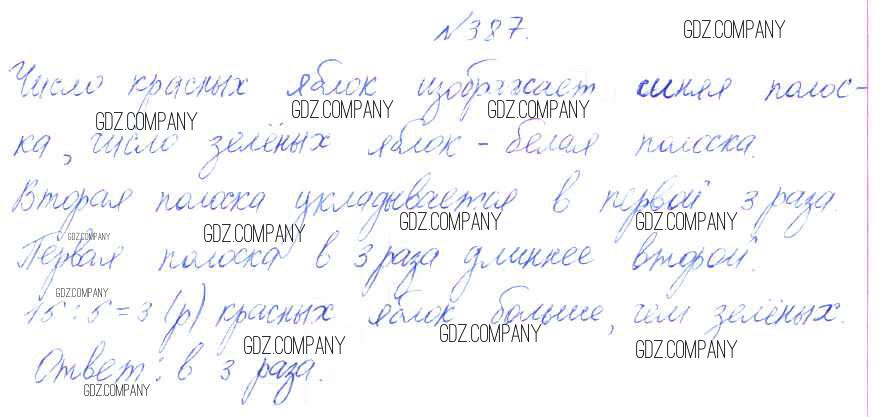 №387.
GDZ.COMPANY
Число красных яблок изображает синяя полос-
GDZ.COMPANY GDZ.COMPANY GDZ.COMPANY
ка, число зелёных яблок - белая полоска.
Вторая полоска укладывается в первой 3 раза.
GDZ.COMPANY GDZ.COMPANY GDZ.COMPANY GDZ.COMPANY
Первая полоска в 3 раза длиннее второй.
GDZ.COMPANY
15 : 5 = 3 (р) красных яблок больше, чем зелёных.
GDZ.COMPANY GDZ.COMPANY GDZ.COMPANY
Ответ: в 3 раза.
GDZ.COMPANY